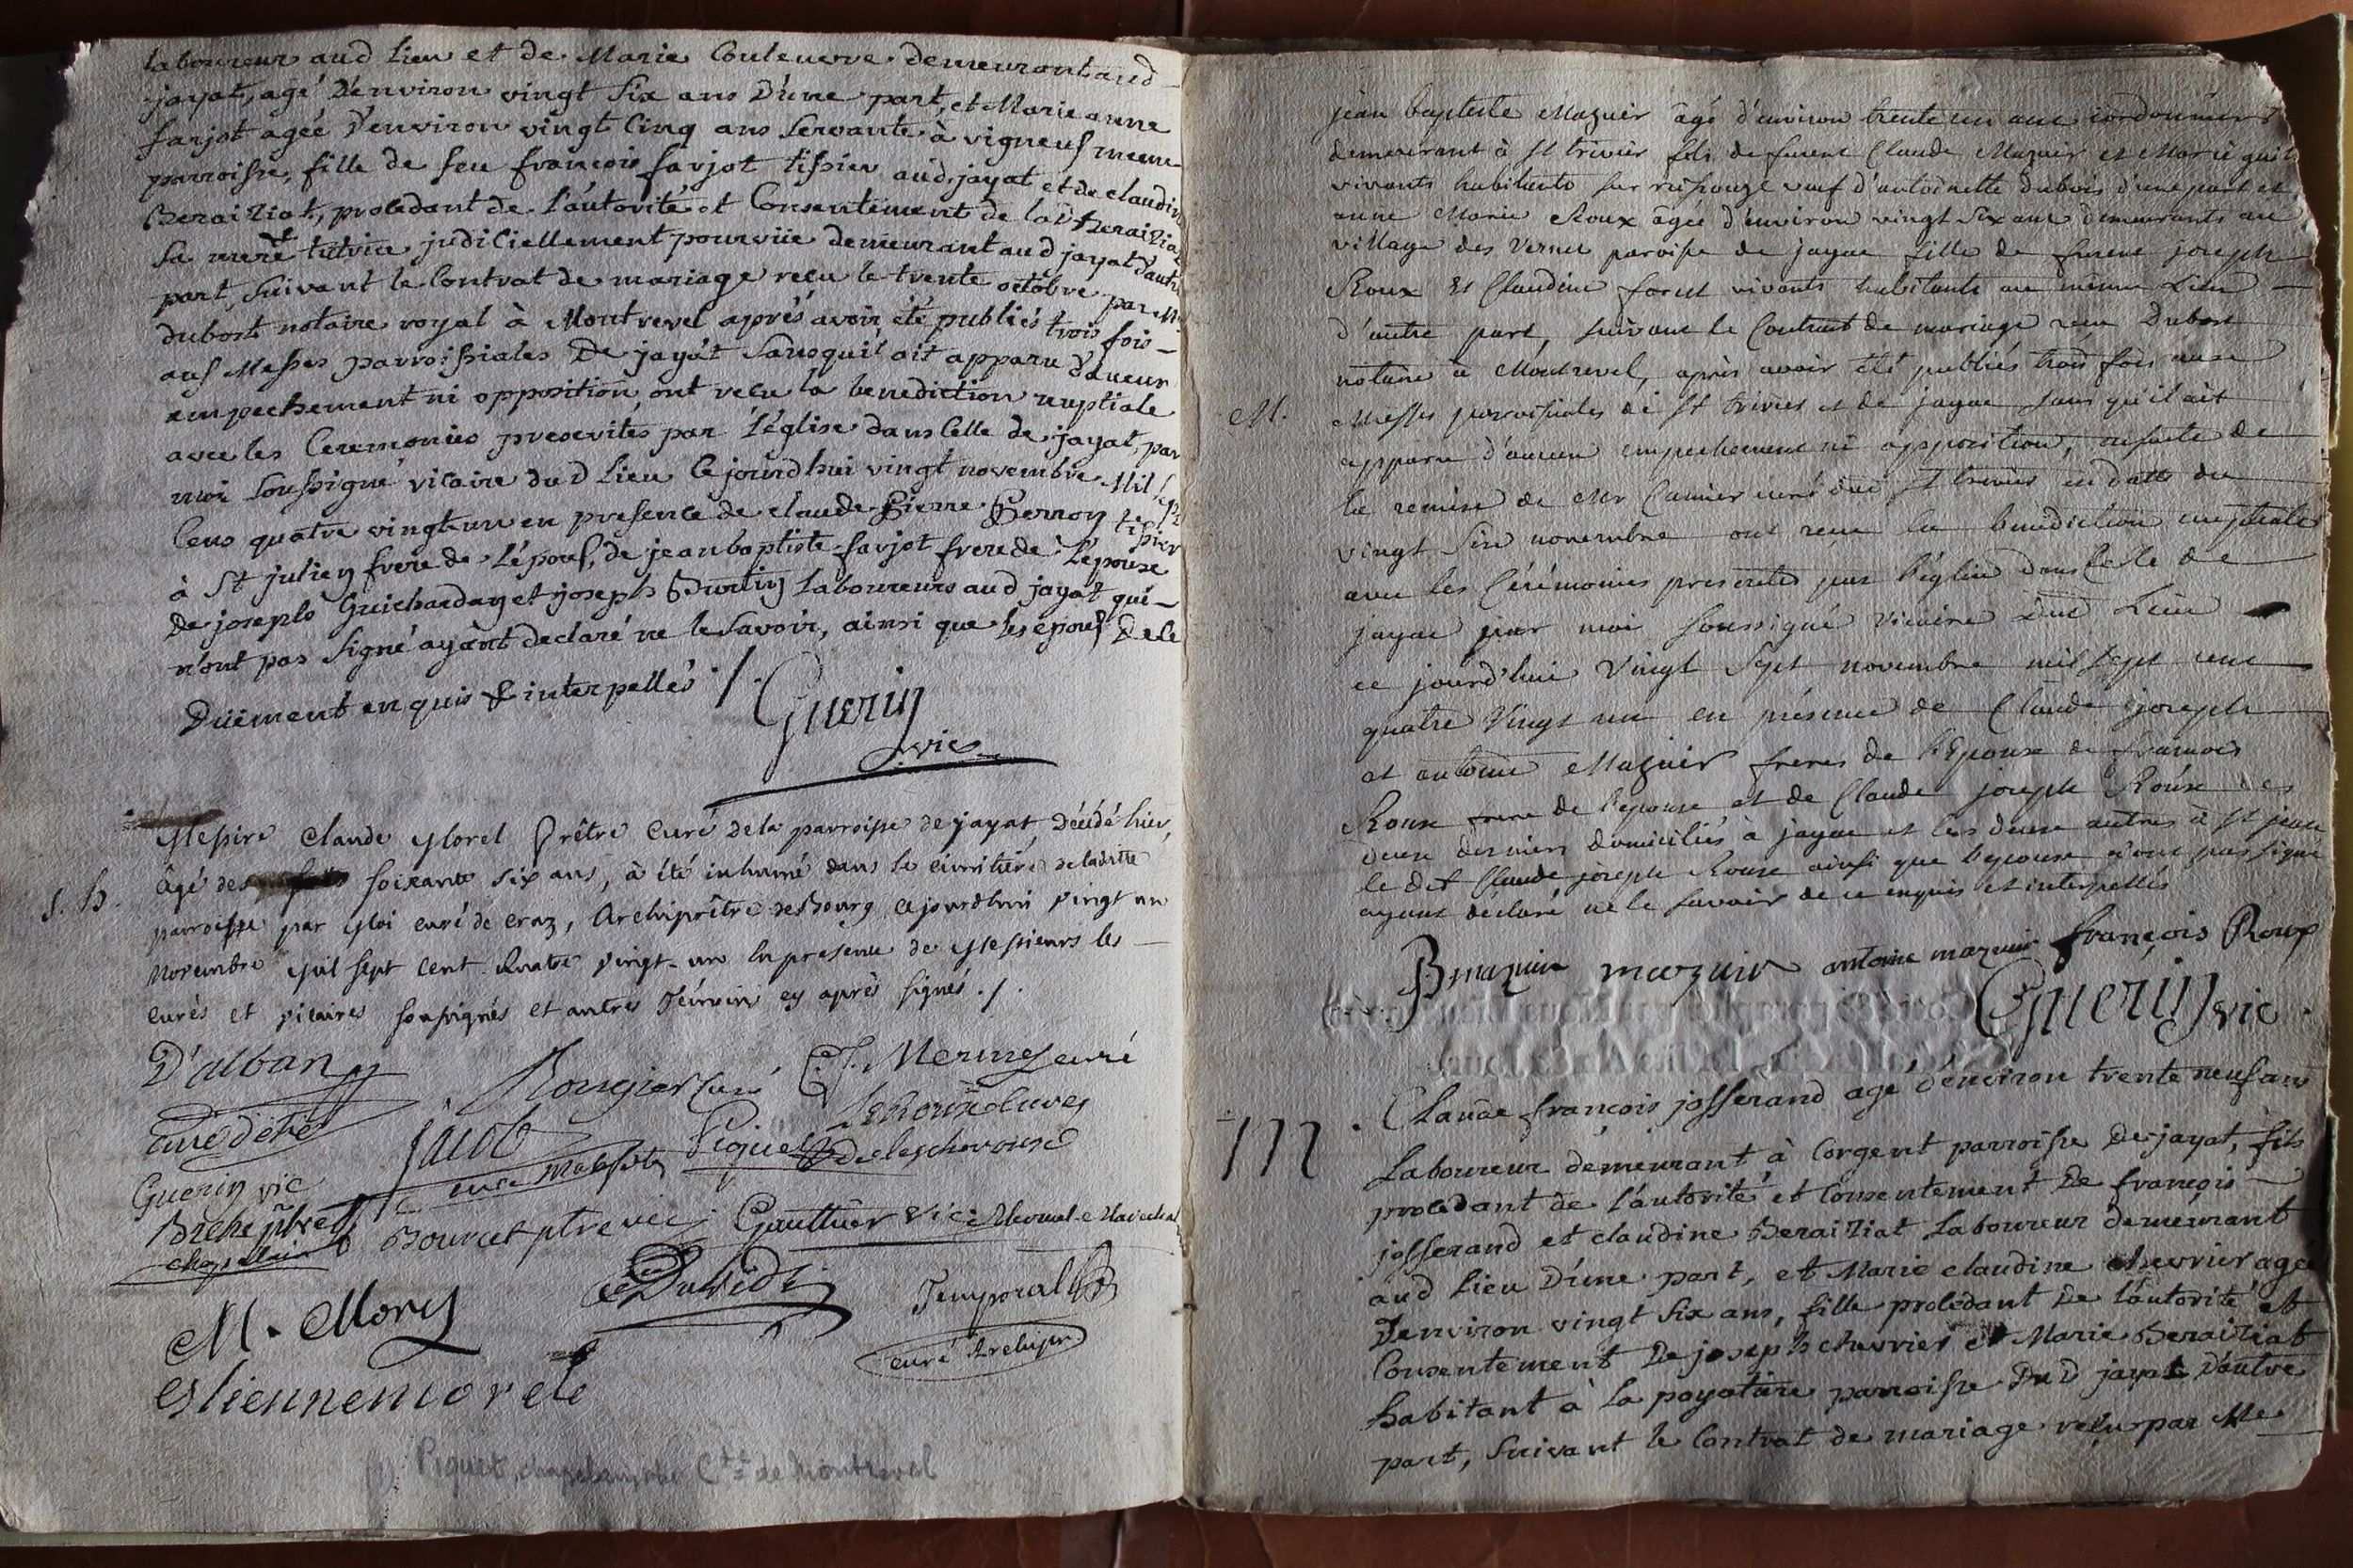 laboureur aud lieu et de Marie Couleuvre demeurant aud
jayat, agé d'environ vingt six ans d'une part, et Marie anne
farjot agée d'environ vingt cinq ans servante à vigneuf meme
parroisse, fille de feu françois farjot tissier aud. jayat et de claudine
Beraiziat, procedant de l'autorité et Consentement de lad Beraiziat
sa mere tutrice judiciellement pourvüe demeurant aud jayat d'autre
part, suivant le Contrat de mariage reçu le trente octobre par Me
dubost notaire royal à Montrevel après avoir été publiés trois fois
aux Messes parroissiales de jayat sans quil ait apparu d'aucun
empechement ni opposition, ont reçu la benediction nuptiale
avec les Ceremonies prescrites par l'église dans Celle de jayat, par
moi soussigné vicaire du d lieu Cejourdhui vingt novembre Mil sept
Cens quatre vingt un en presence de claude Pierre Perron tissier
à St julien frere de l'époux, de jean baptiste farjot frere de l'épouse
de joseph Guichardan et joseph Burtin laboureurs aud jayat qui
n'ont pas signé ayant declaré ne le savoir, ainsi que les epoux de ce
Duëment enquis & interpellés ./.
Guerin
vic
Messire Claude Morel Prêtre Curé de la parroisse de jayat, décédé hier,
s. h. âgé de soixante six ans, à été inhumé dans le cimitière de ladite
parroisse par Moi curé de craz, Archiprêtre de Bourg cejourdhui vingt un
Novembre Mil sept Cent Quatre vingt-un En presence de Messieurs les
curés et vicaires soussignés et autres Témoins cy après signés ./.
D'alban
curé d'etré
Rougier Curé
C. J. Mermez curé
jacob
curé
Piguet
Guerin vic
Breke ptre
chapelain
Bourcet ptre vic
Gauttier vic
M. Morel
Dubidi
Temporal
curé Archipr.
Estienne morel
Piguet, chapelain du Cté de Montrevel
jean baptiste Mazuir âgé d'environ trente un ans cordonnier
demeurant à St trivier fils de furent Claude Mazuir et Marie
vivants habitants sur veuf d'antoinette Dubois d'une part et
anne Marie Roux âgée d'environ vingt six ans demeurante au
village des Vernes paroisse de jayat fille de furent joseph
Roux Et Claudine foret vivants habitants au même Lieu
d'autre part, suivant le Contrat de mariage reçu Dubost
notaire à Montrevel, après avoir été publiés trois fois aux
M. Messes parroissiales de St trivier et de jayat sans qu'il ait
apparu d'aucun empechement ni opposition, ensuite de
la remise de Mr Cunier curé dud St trivier en datte du
vingt six novembre ont reçu la benediction nuptiale
avec les Cérémonies prescrites par l'église dans Celle de
jayat par moi soussigné vicaire dud Lieu
ce jourd'hui Vingt Sept novembre mil sept cent
quatre Vingt un en présence de Claude joseph
et antoine Mazuir freres de l'Epoux de françois
Roux frere de l'epouse et de Claude joseph Roux les
deux derniers domiciliés à jayat et les deux autres à St jean
le dit Claude joseph Roux ainsi que l'epouse n'ont pas signé
ayant déclaré ne le savoir de ce enquis et interpellés
B mazuir mazuir antoine mazuir françois Roux
Guerin vic.
Claude françois josserand agé d'environ trente neuf ans
m. laboureur demeurant à Corgent parroisse de jayat, fils
procedant de l'autorité et Consentement de françois
josserand et claudine Beraiziat laboureur demeurant
aud lieu d'une part, et Marie claudine chevrier agée
d'environ vingt six ans, fille procedant de l'autorité et
Consentement de joseph chevrier et Marie Beraiziat
habitant à la payatiere parroisse du d jayat d'autre
part, suivant le Contrat de mariage reçu par Me